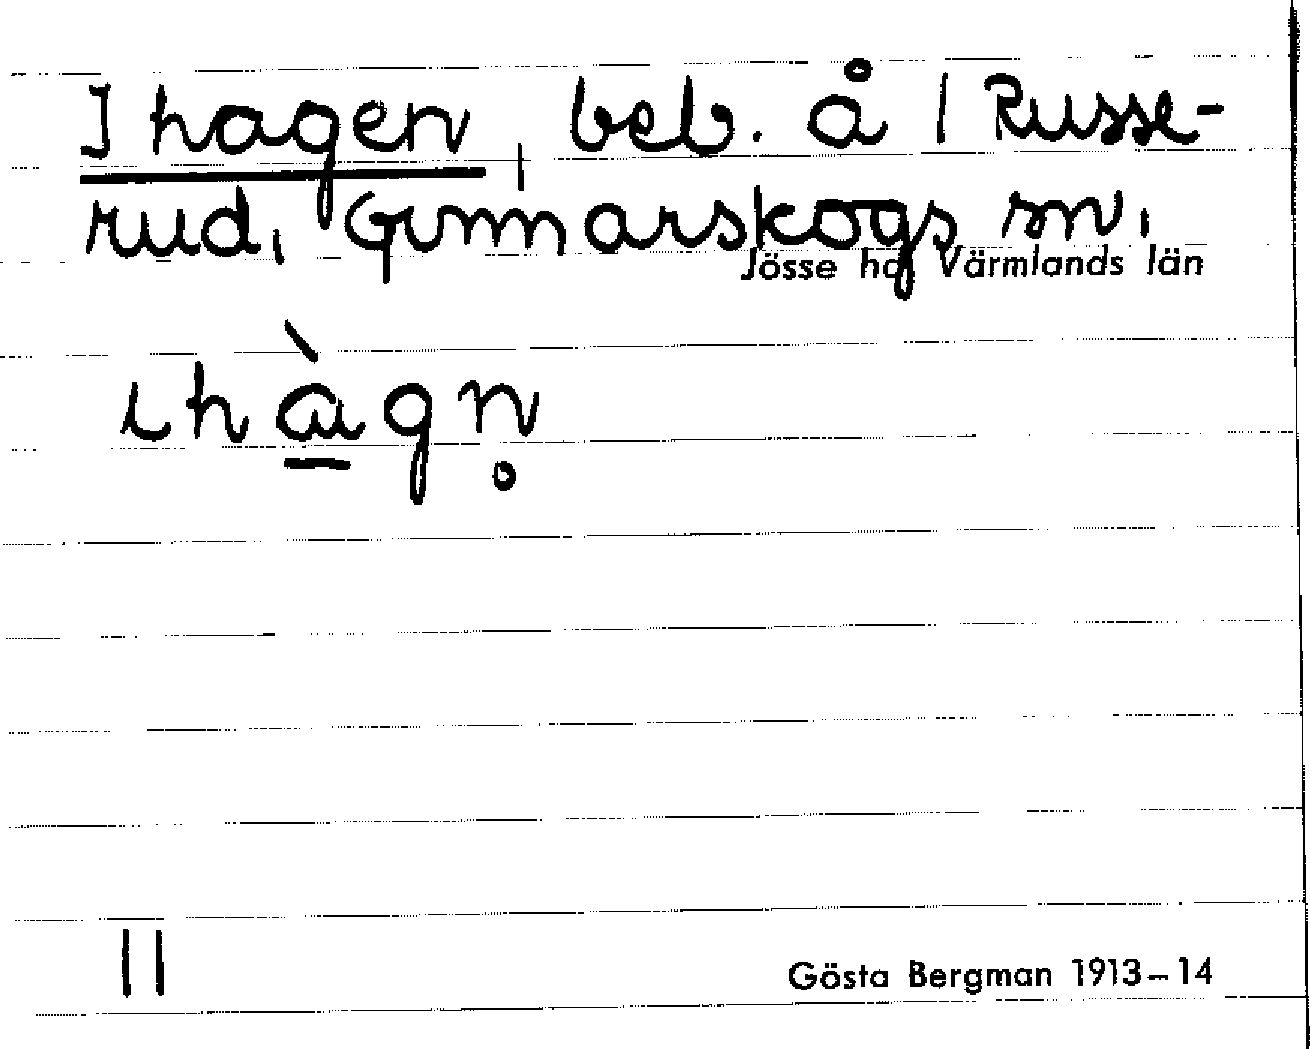 I hagen, beb. å 1 Russe-
rud, Gunnarskogs sn,
Jösse hd Värmlands län
ɩhὰgn̥
11
Gösta Bergman 1913–14